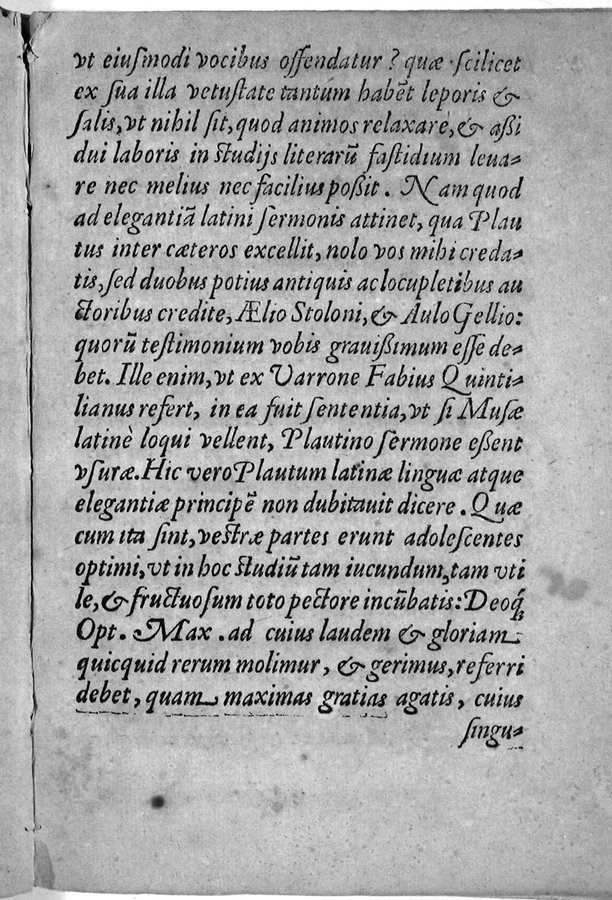 vt eiuſmodi vocibus offendatur? quæ ſcilicet
ex ſua illa vetuſtate tantum habẽt leporis &
ſalis, vt nihil ſit, quod animos relaxare, & aßi
dui laboris in ſtudijs literarũ faſtidium leua-
re nec melius nec facilius poßit. Nam quod
ad elegantiã latini ſermonis attinet, qua Plau
tus inter cæteros excellit, nolo vos mihi creda-
tis, ſed duobus potius antiquis ac locupletibus au
ctoribus credite, Ælio Stoloni, & Aulo Gellio:
quorũ teſtimonium vobis grauißimum eſſe de-
bet. Ille enim, vt ex Varrone Fabius Quinti-
lianus refert, in ea fuit ſententia, vt ſi Muſæ
latinè loqui vellent, Plautino ſermone eßent
vſuræ. Hic vero Plautum latinæ linguæ atque
elegantiæ principẽ non dubitauit dicere. Quæ
cum ita ſint, veſtræ partes erunt adoleſcentes
optimi, vt in hoc ſtudiũ tam iucundum, tam vti
le, & fructuoſum toto pectore incũbatis: Deoq́;
Opt. Max. ad cuius laudem & gloriam
quicquid rerum molimur, & gerimus, referri
debet, quam maximas gratias agatis, cuius
ſingu-